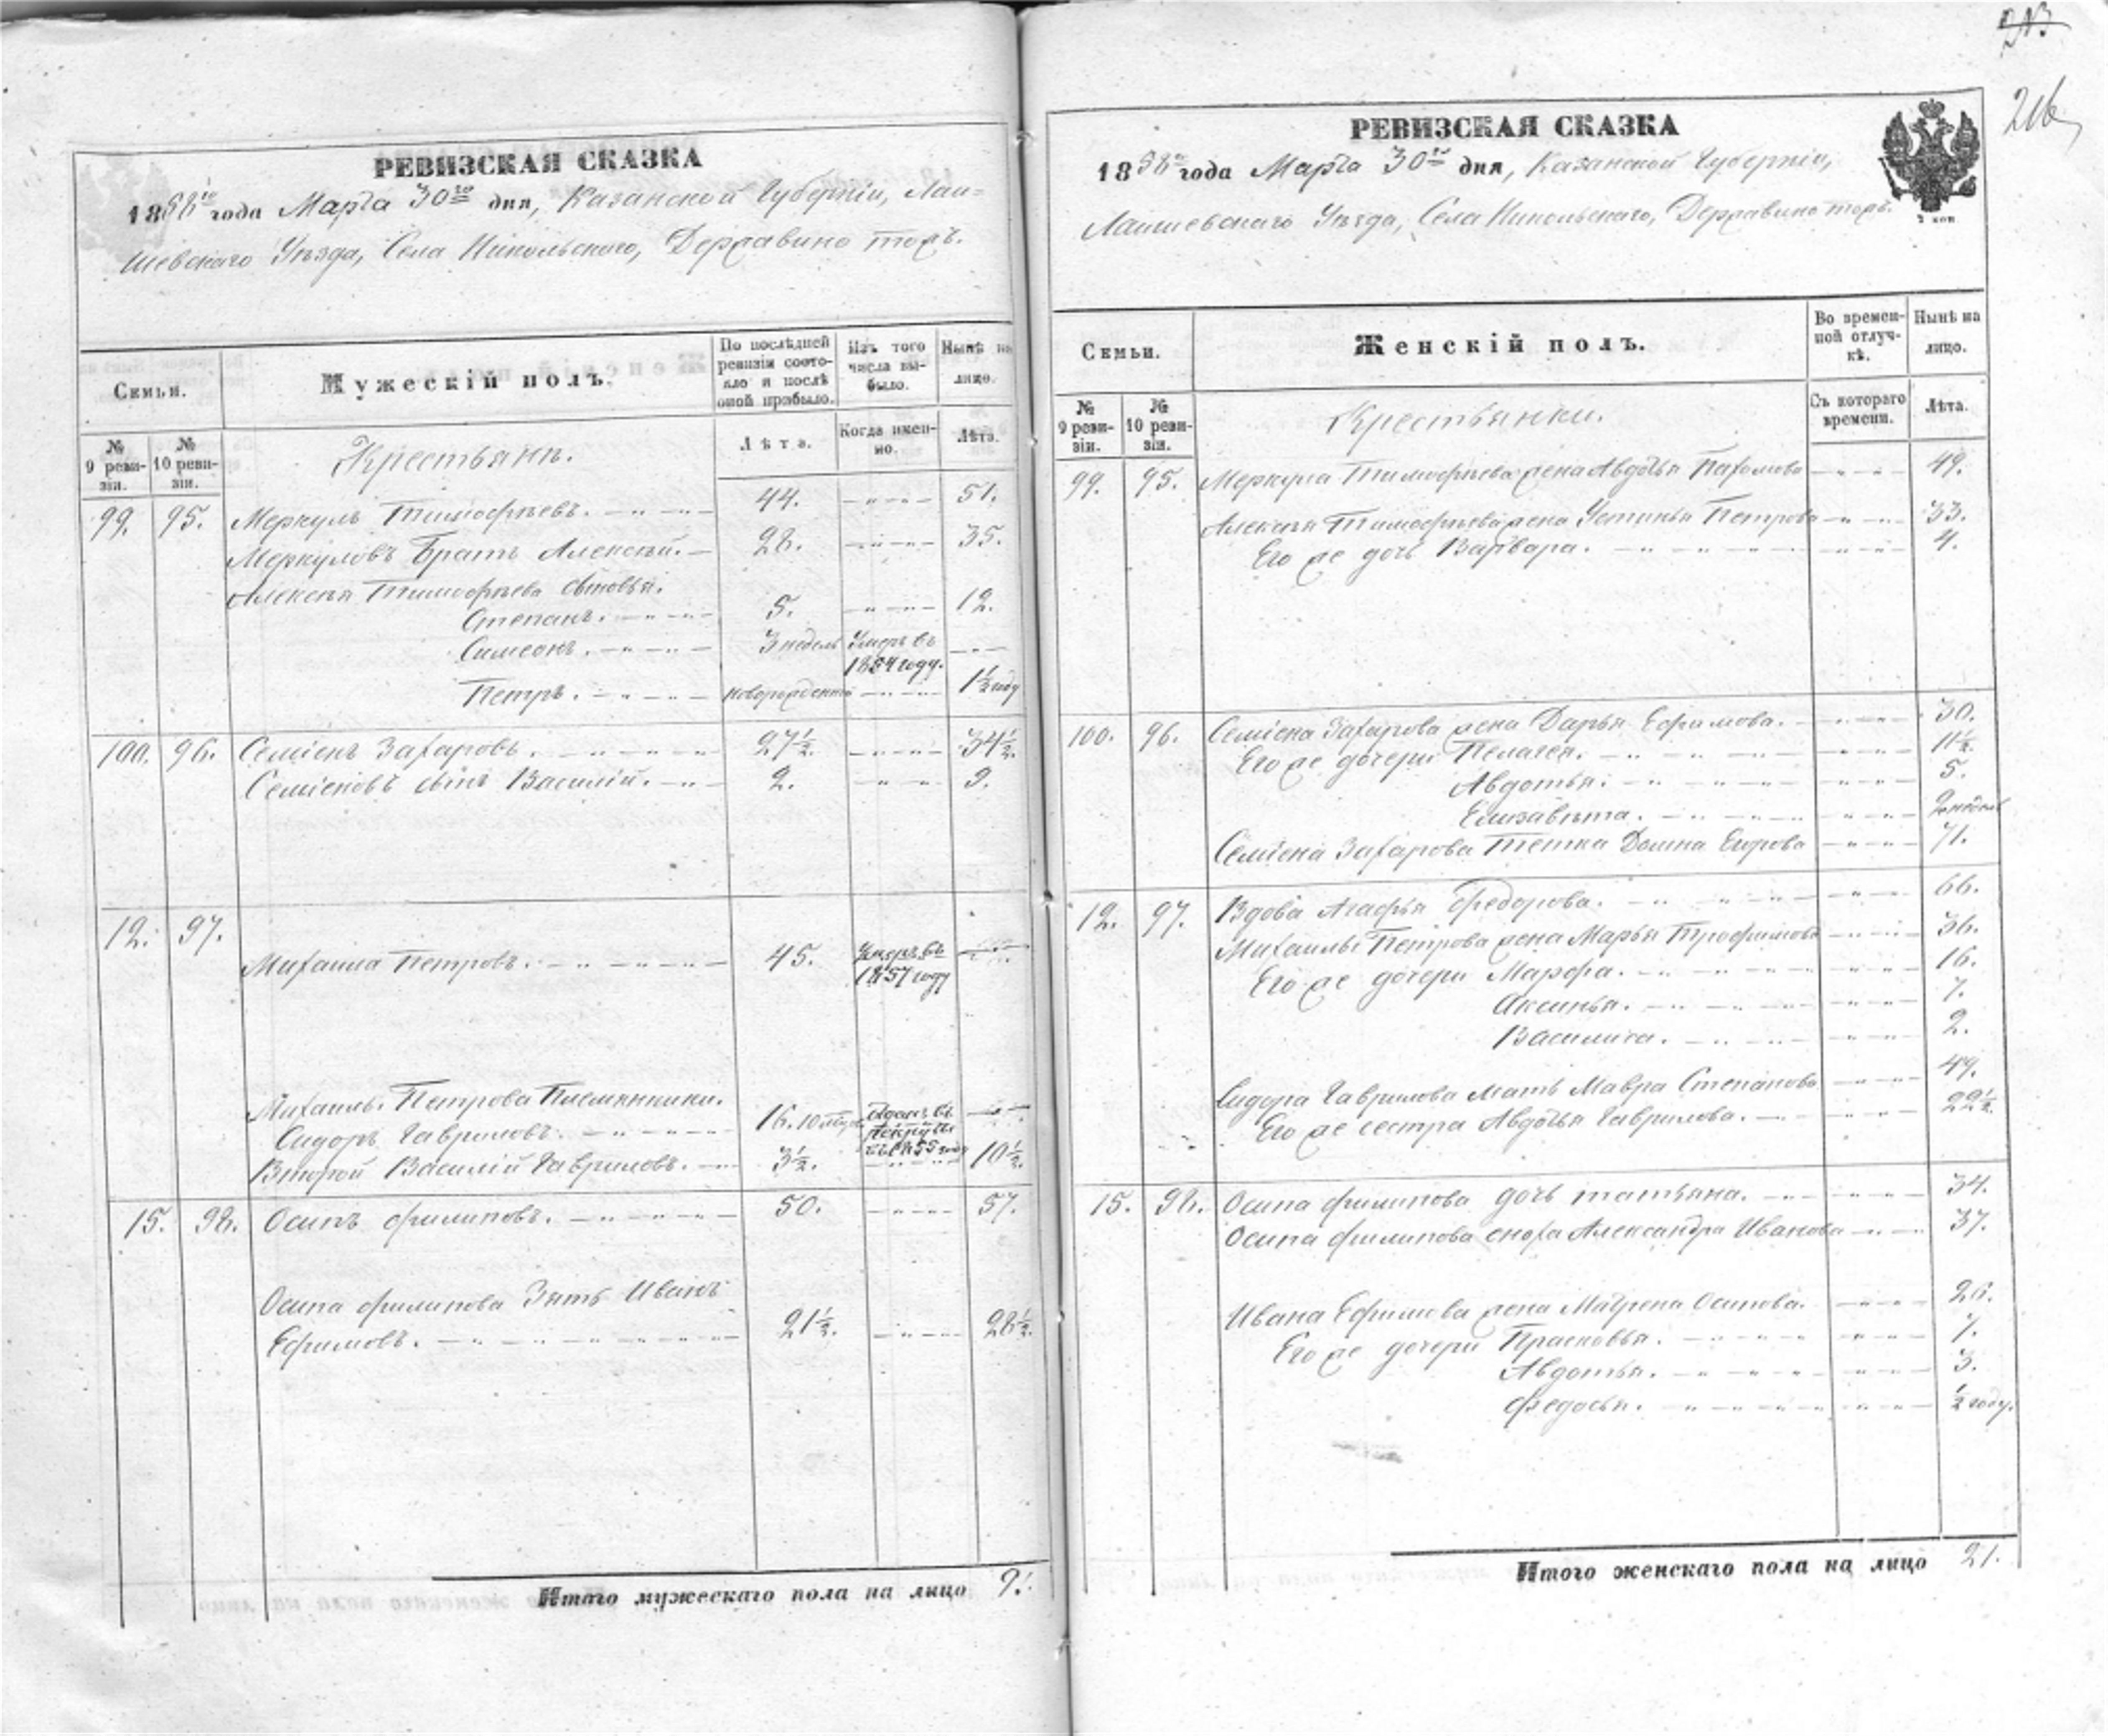 РЕВИЗСКАЯ СКАЗКА
1858го года Марта 30го дня, Казанской Губерніи, Лаи-
шевскаго Уѣзда, Села Никольскаго, Державино тожъ.
Семьи.
Мужескій полъ.
По послѣдней ревизіи состояло и послѣ оной прибыло.
Изъ того числа выбыло.
Нынѣ на лицо.
№ 9 ревизіи.
№ 10 ревизіи.
Крестьянъ.
Лѣта.
Когда именно.
Лѣта.
99. 95. Меркулъ Тимофѣевъ. 44. 51.
Меркуловъ Братъ Алексѣй. 28. 35.
Алексѣя Тимофѣева сыновья.
Степанъ. 5. 12.
Симеонъ. 3 недель Умеръ въ 1854 году.
Петръ. новорожденный 1½ году
100. 96. Семіенъ Захаровъ. 27½. 34½.
Семіеновъ сынъ Василій. 2. 9.
12. 97.
Михаила Петровъ. 45. Умеръ въ 1857 году
Михаилы Петрова Племянники.
Сидоръ Гавриловъ. 16. 10 Отданъ въ рекруты въ 1855 году
Второй Василій Гавриловъ. 3½. 10½.
15. 98. Осипъ Филиповъ. 50. 57.
Осипа Филипова Зять Иванъ
Ефимовъ. 21½. 28½.
Итого мужескаго пола на лицо 9.
216
РЕВИЗСКАЯ СКАЗКА
1858го года Марта 30го дня, Казанской Губерніи,
Лаишевскаго Уѣзда, Села Никольскаго, Державино тожъ.
2 коп
Семьи.
Женскій полъ.
Во временной отлучкѣ.
Нынѣ на лицо.
№ 9 ревизіи.
№ 10 ревизіи.
Крестьянки.
Съ котораго времени.
Лѣта.
99. 95. Меркула Тимофѣева жена Авдотья Пахомова 49.
Алексѣя Тимофѣева жена Устинья Петрова 33.
Его же дочь Варвара. 4.
100. 96. Семіена Захарова жена Дарья Ефимова. 30.
Его же дочери Пелагея. 11½.
Авдотья. 5.
Елизавѣта. недель
Семіена Захарова Тетка Домна Егорова 71.
12. 97. Вдова Агафья Федорова. 66.
Михаилы Петрова жена Марья Трофимова 36.
Его же дочери Марфа. 16.
Аксинья. 7.
Василиса. 2.
Сидора Гаврилова Мать Мавра Степанова 49.
Его же сестра Авдотья Гаврилова. 22½.
15. 98. Осипа Филипова дочь татьяна. 34.
Осипа Филипова сноха Александра Иванова 37.
Ивана Ефимова жена Матрена Осипова. 26.
Его же дочери Прасковья. 7.
Авдотья. 3.
Федосья. ½ году.
Итого женскаго пола на лицо 21.